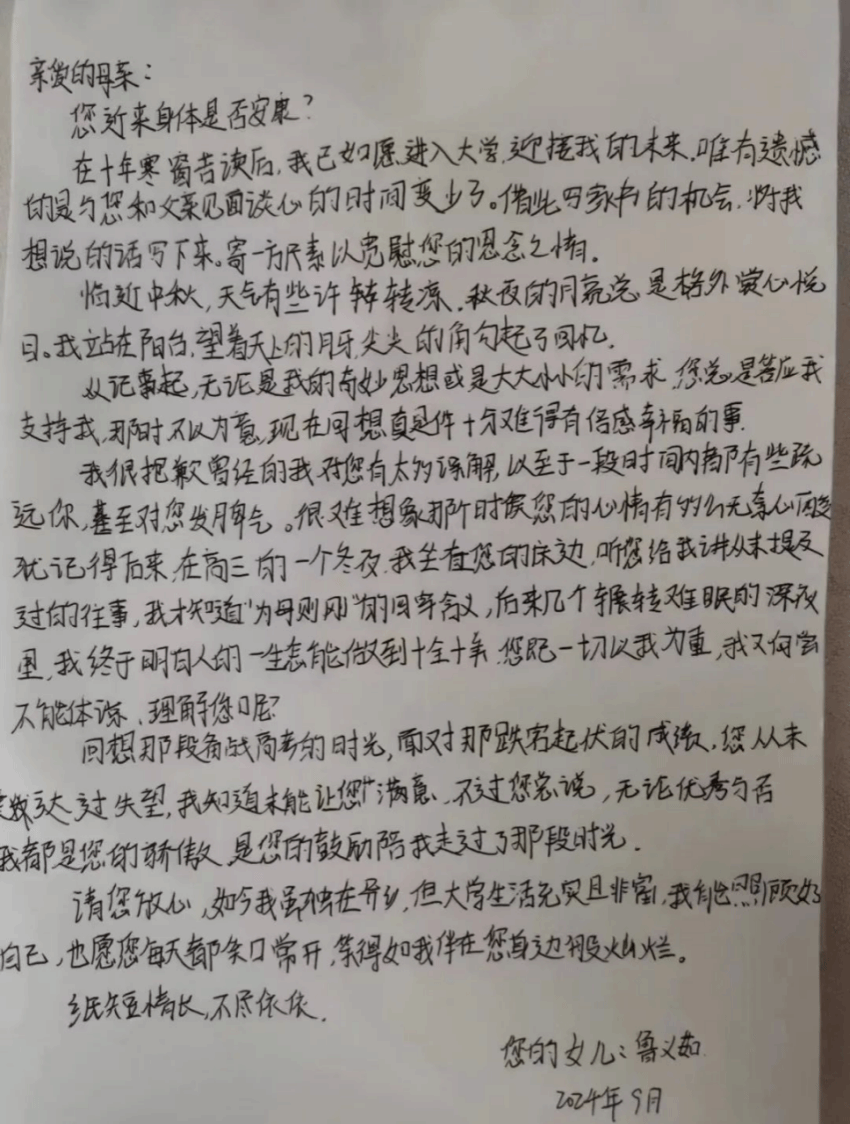 亲爱的母亲：
您近来身体是否安康？
在十年寒窗苦读后，我已如愿进入大学，迎接我的未来，唯有遗憾
的是与您和父亲见面谈心的时间变少了。借此写家书的机会，将我
想说的话写下来。寄一方尺素以宽慰您的思念之情。
临近中秋，天气有些许转凉，秋夜的月亮总是格外赏心悦
目。我站在阳台，望着天上的月牙，尖尖的角勾起了回忆。
从记事起，无论是我的奇妙思想或是大大小小的需求，您总是答应我
支持我，那时不以为意，现在回想真是件十分难得有倍感幸福的事
我很抱歉曾经的我对您有太多误解，以至于一段时间内都有些疏
远你，甚至对您发脾气。很难想象那个时候您的心情有多么无奈心酸
犹记得后来，在高三的一个冬夜，我坐在您的床边，听您给我讲从未提及
过的往事，我才知道“为母则刚”的含义，后来几个辗转难眠的深夜
里，我终于明白人的一生怎能做到十全十美，您既一切以我为重，我又何尝
不能体谅、理解您呢？
回想那段备战高考的时光，面对那跌宕起伏的成绩，您从未
表达过失望，我知道未能让您满意，不过您总说，无论优秀与否
我都是您的骄傲，是您的鼓励陪我走过了那段时光。
请您放心，如今我虽独在异乡，但大学生活充实且丰富，我能照顾好
自己，也愿您每天都笑口常开，笑得如我伴在您身边般灿烂。
纸短情长，不尽依依。
您的女儿：鲁义茹
2024年9月